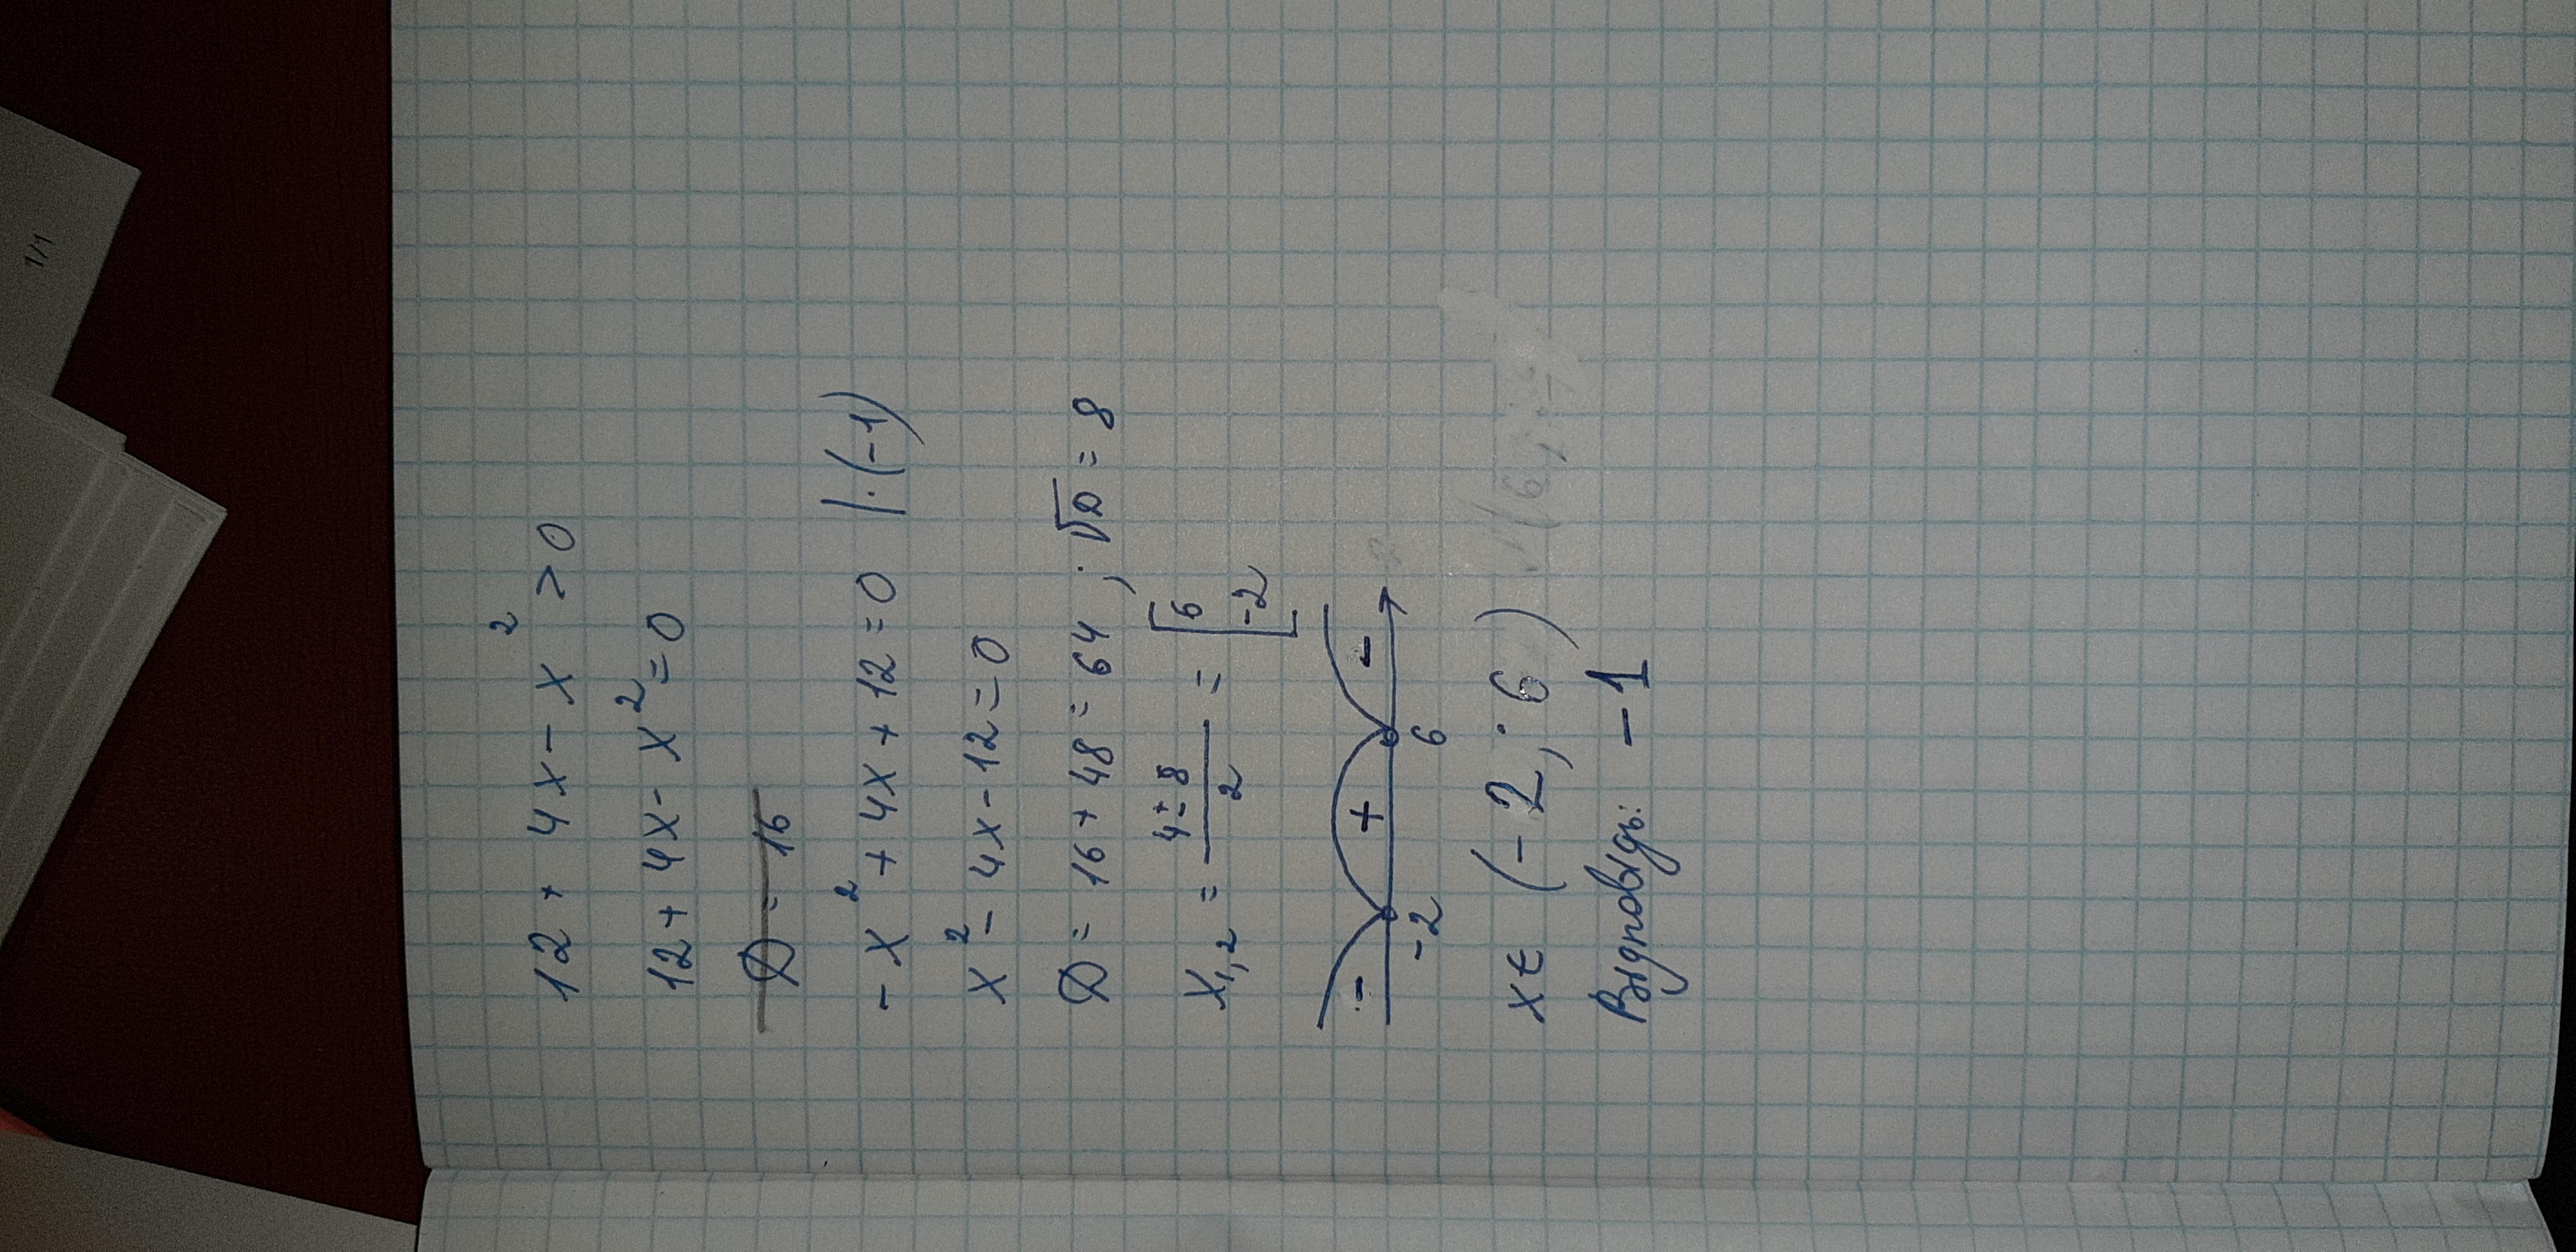 12 + 4x - x² > 0
12 + 4x - x² = 0
D = 16
- x² + 4x + 12 = 0 | · (-1)
x² - 4x - 12 = 0
D = 16 + 48 = 64 ; √D = 8
x₁,₂ = (4 ± 8)/2 = [6 -2
- + -
-2 6
x ∈ (-2 ; 6)
Відповідь: -1
1/1